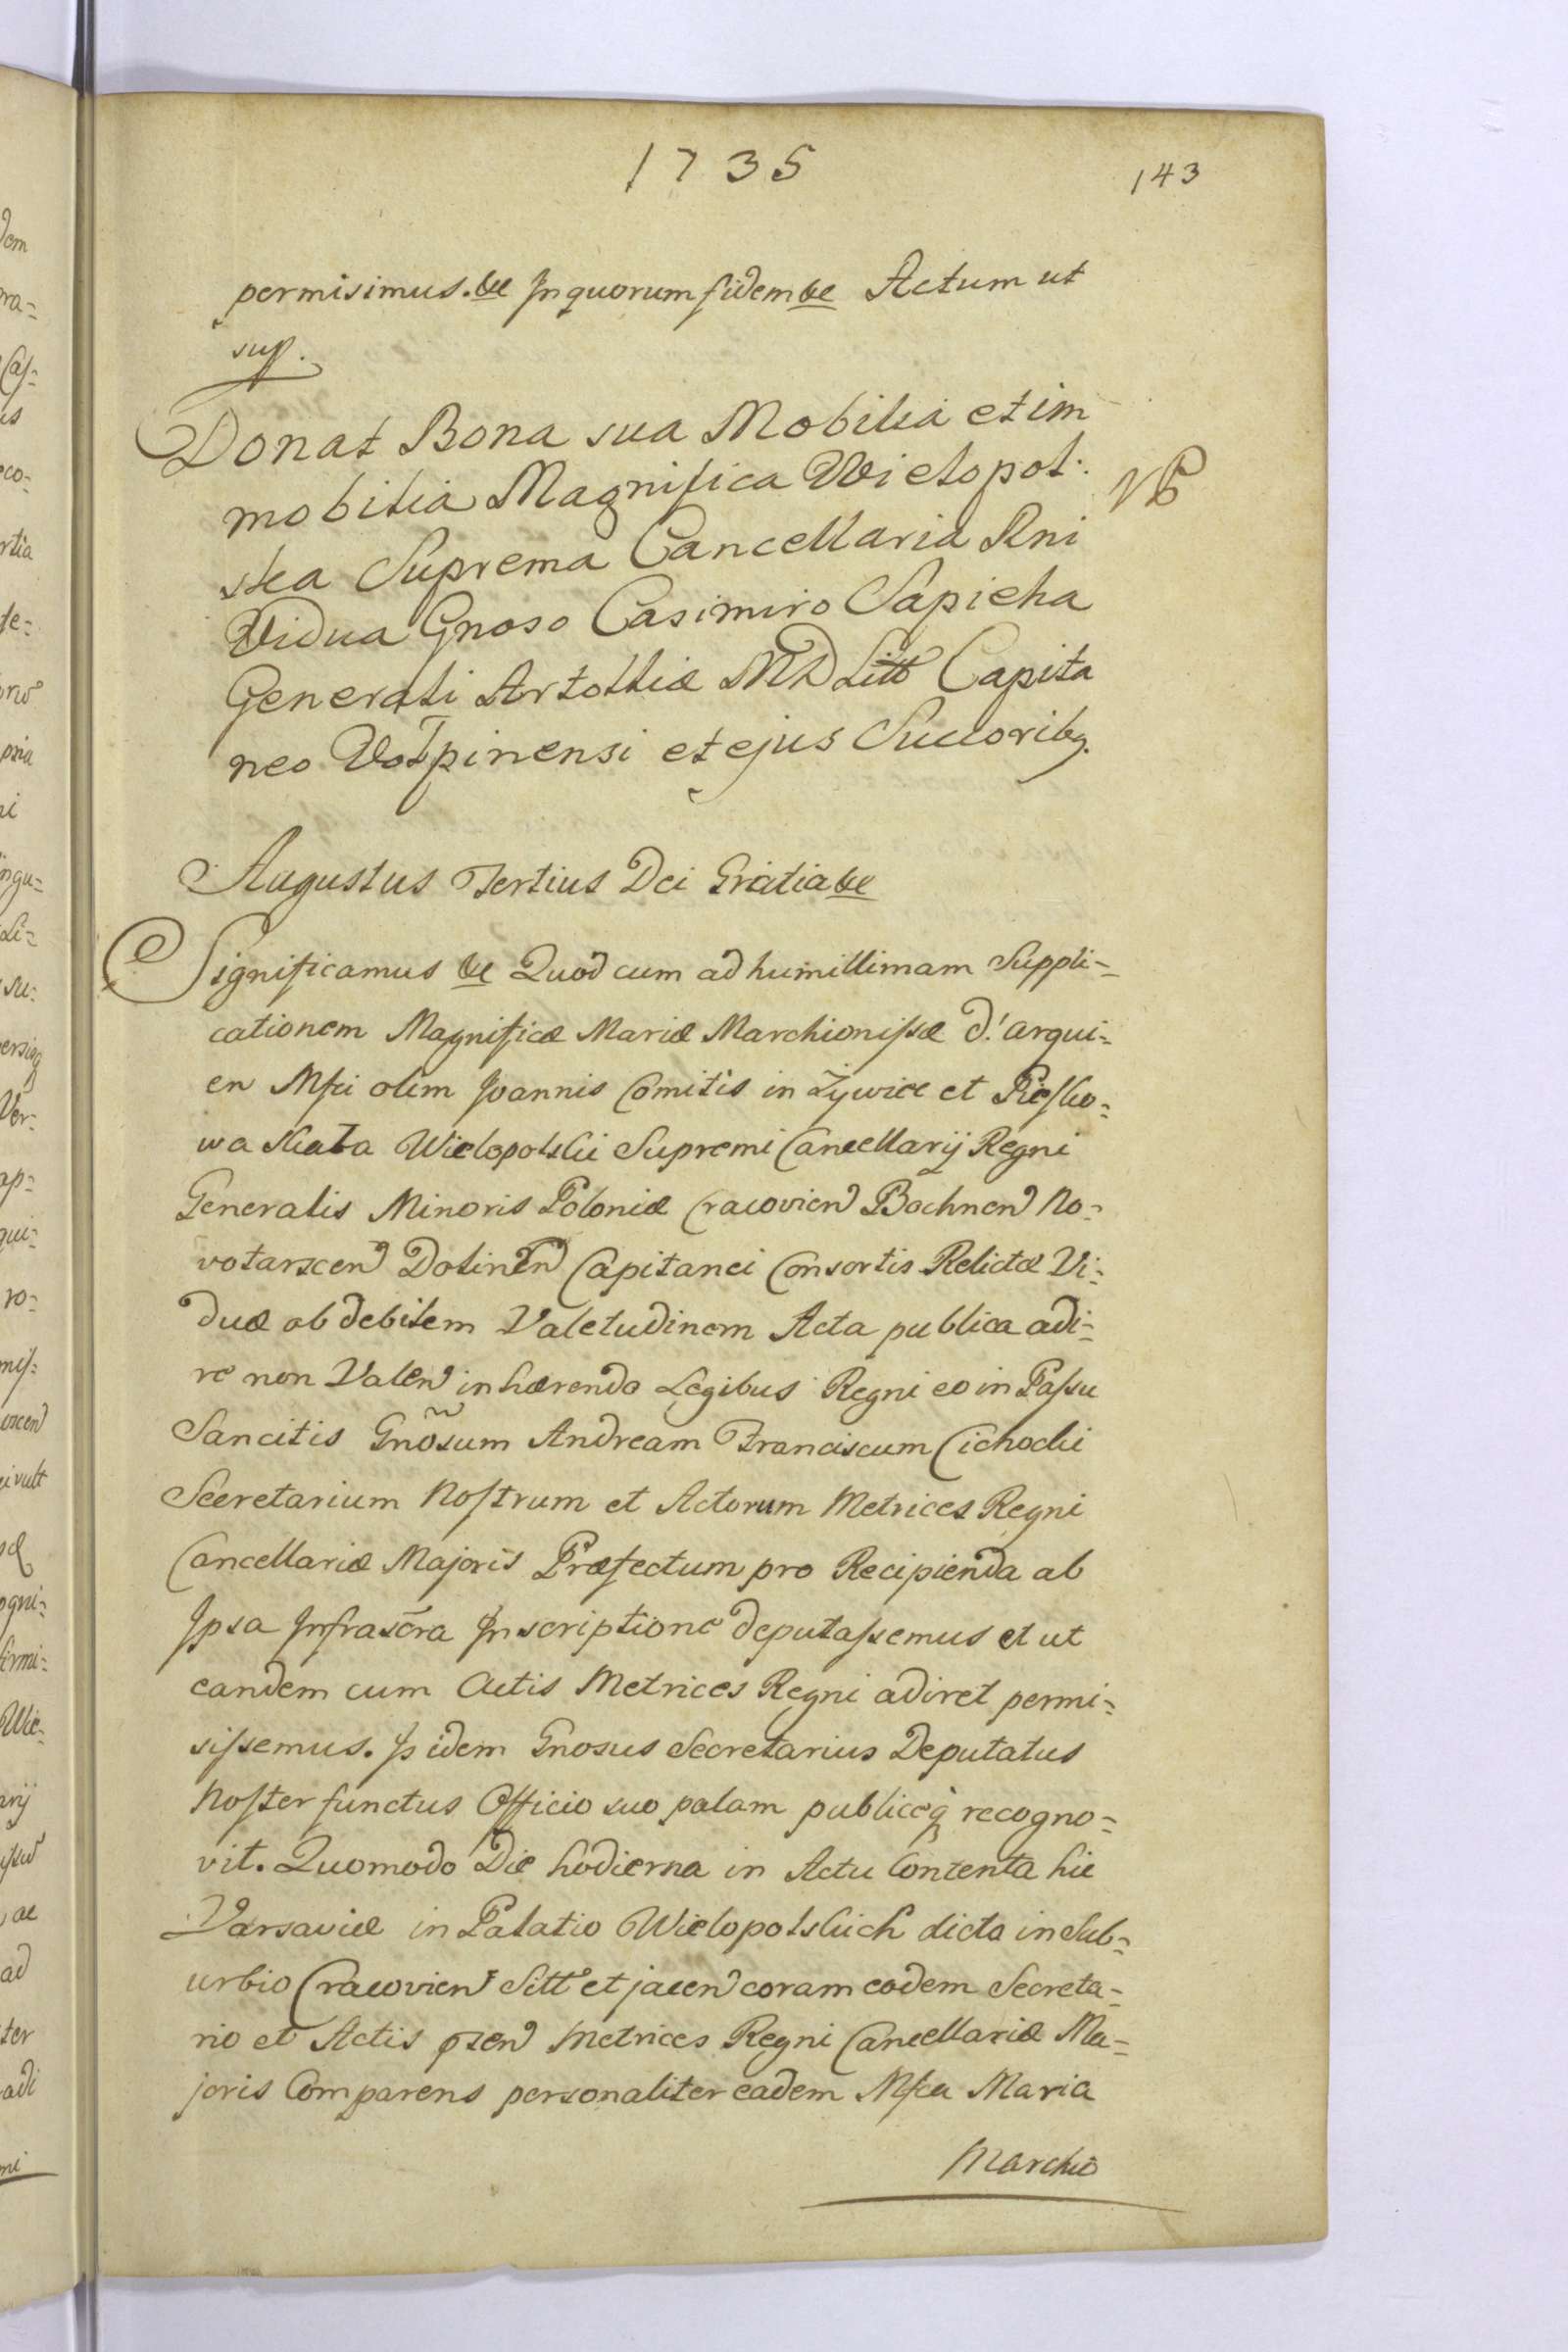 1735
143
permisimus. &c Jn quorum fidem &c Actum ut
sup.
Donat Bona sua Mobilia et im
mobilia Magnifica Wielopol:
ska Suprema Cancellaria Rni
Vidua Gnoso Casimiro Sapieha
Generali Artolliæ MD Litt Capita
neo Wołpinensi et ejus Succoribq.
NB
Augustus Tertius Dei Gratia &c
Significamus &c Quod cum ad humillimam Suppli=
cationem Magnificæ Mariæ Marchionissæ d'arqui=
en Mfci olim Joannis Comitis in Żywiec et Piesko=
wa Skała Wielopolski Supremi Cancellarij Regni
Generalis Minoris Poloniæ Cracovien Bochnen No=
votarscen Dolinen Capitanei Consortis Relictæ Vi=
duæ ob debilem Valetudinem Acta publica adi=
re non Valen inhærendo Legibus Regni eo in Passu
Sancitis Gnõsum Andream Franciscum Cichocki
Secretarium Nostrum et Actorum Metrices Regni
Cancellariæ Majoris Præfectum pro Recipienda ab
Jpsa Jnfrascra Jnscriptione deputassemus et ut
eandem cum Actis Metrices Regni adiret permi=
sissemus. Js idem Gnosus Secretarius Deputatus
Noster functus Officio suo palam publiceq recogno=
vit. Quomodo Die hodierna in Actu Contenta hic
Varsaviæ in Palatio Wielopolskich dicto in Sub=
urbio Cracovien Sitto et jacen coram eodem Secreta=
rio et Actis pscn Metrices Regni Cancellariæ Ma=
joris Comparens personaliter eadem Mfca Maria
Marchio